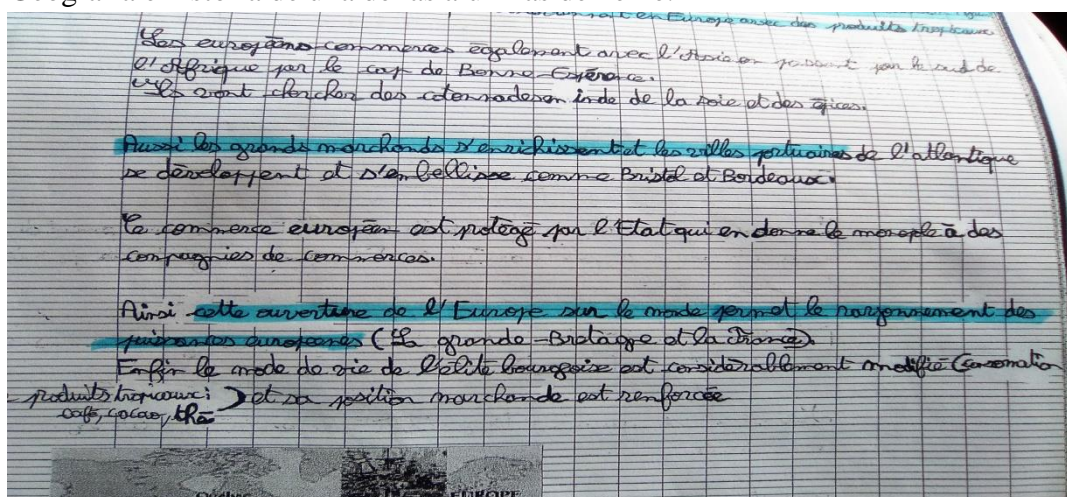 en Europe avec des produits tropicaux
Les européens commerces également avec l'Asie en passant par le sud de
l'Afrique par le cap de Bonne-Espérence.
Ils vont chercher des cotonnades en inde de la soie et des épices.
Aussi les grands marchands s'enrichissent et les villes portuaires de l'atlantique
se développent et s'embellisse comme Bristol et Bordeaux.
Le commerce européen est protégé par l'Etat qui en donne le monople à des
compagnies de commerces.
Ainsi cette ouverture de l'Europe sur le monde permet le rayonnement des
puissances européenes (La grande-Bretagne et la France).
Enfin le mode de vie de l'élite bourgeoise est considérablement modifié (consomation
produits tropicaux: ) et sa position marchande est renforcée
café, cacao, thé
Québec
EUROPE